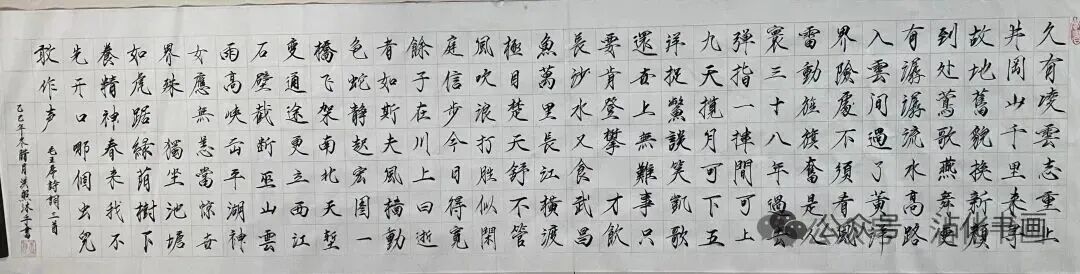 久有凌雲志重上
井岡山千里来尋
故地舊貌换新顏
到处鶯歌燕舞更
有潺潺流水高路
入雲间過了黄洋
界險處不須看風
雷動旌旗奮是
寰三十八年過去
弹指一揮間可上
九天攬月可下五
洋捉鱉談笑凱歌
還上無難事只
要肯登攀 才飲
長沙水又食武昌
魚萬里長江橫渡
極目楚天舒不管
風吹浪打胜似閑
庭信步今日得寬
餘子在川上曰逝
者如斯夫風檣動
蛇静起宏图一
橋飞架南北天塹
变通途更立西江
石壁截断巫山雲
雨高峡出平湖神
女應無恙當惊世
界殊 獨坐池塘
如虎踞緑荫樹下
養精神春来我不
先开口哪個虫兒
敢作声
毛主席詩詞三首
乙巳年冬腊月
公众号 · 沾化书画